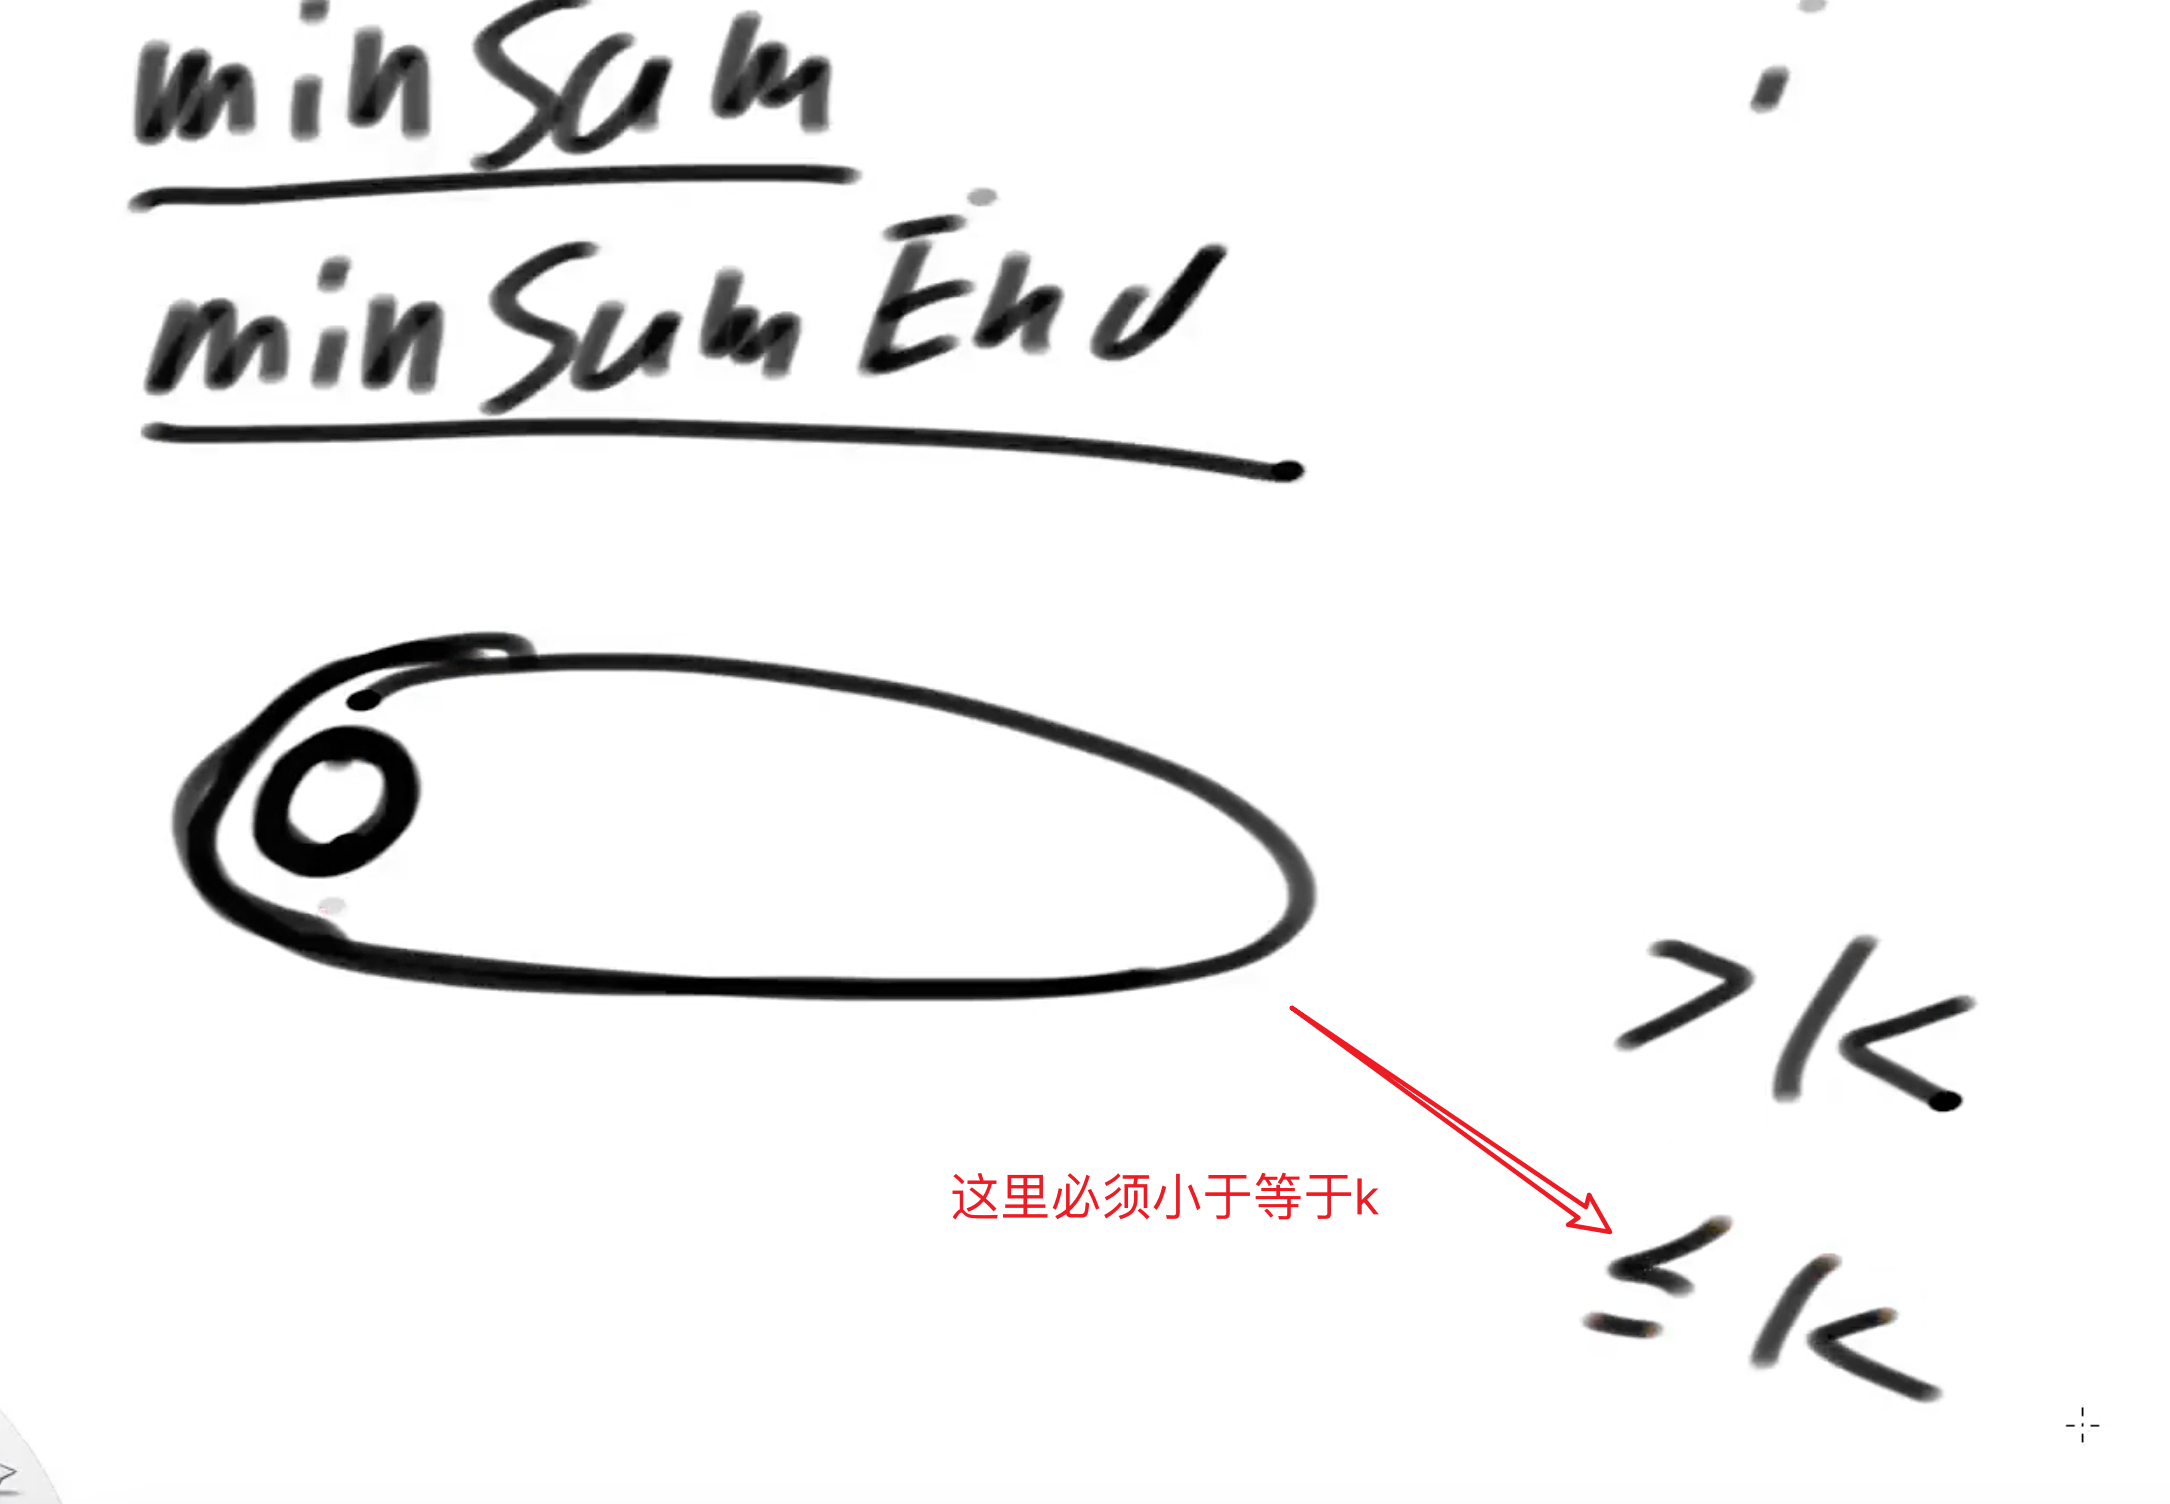 minSum
minSumEnd
>k
这里必须小于等于k
≤k